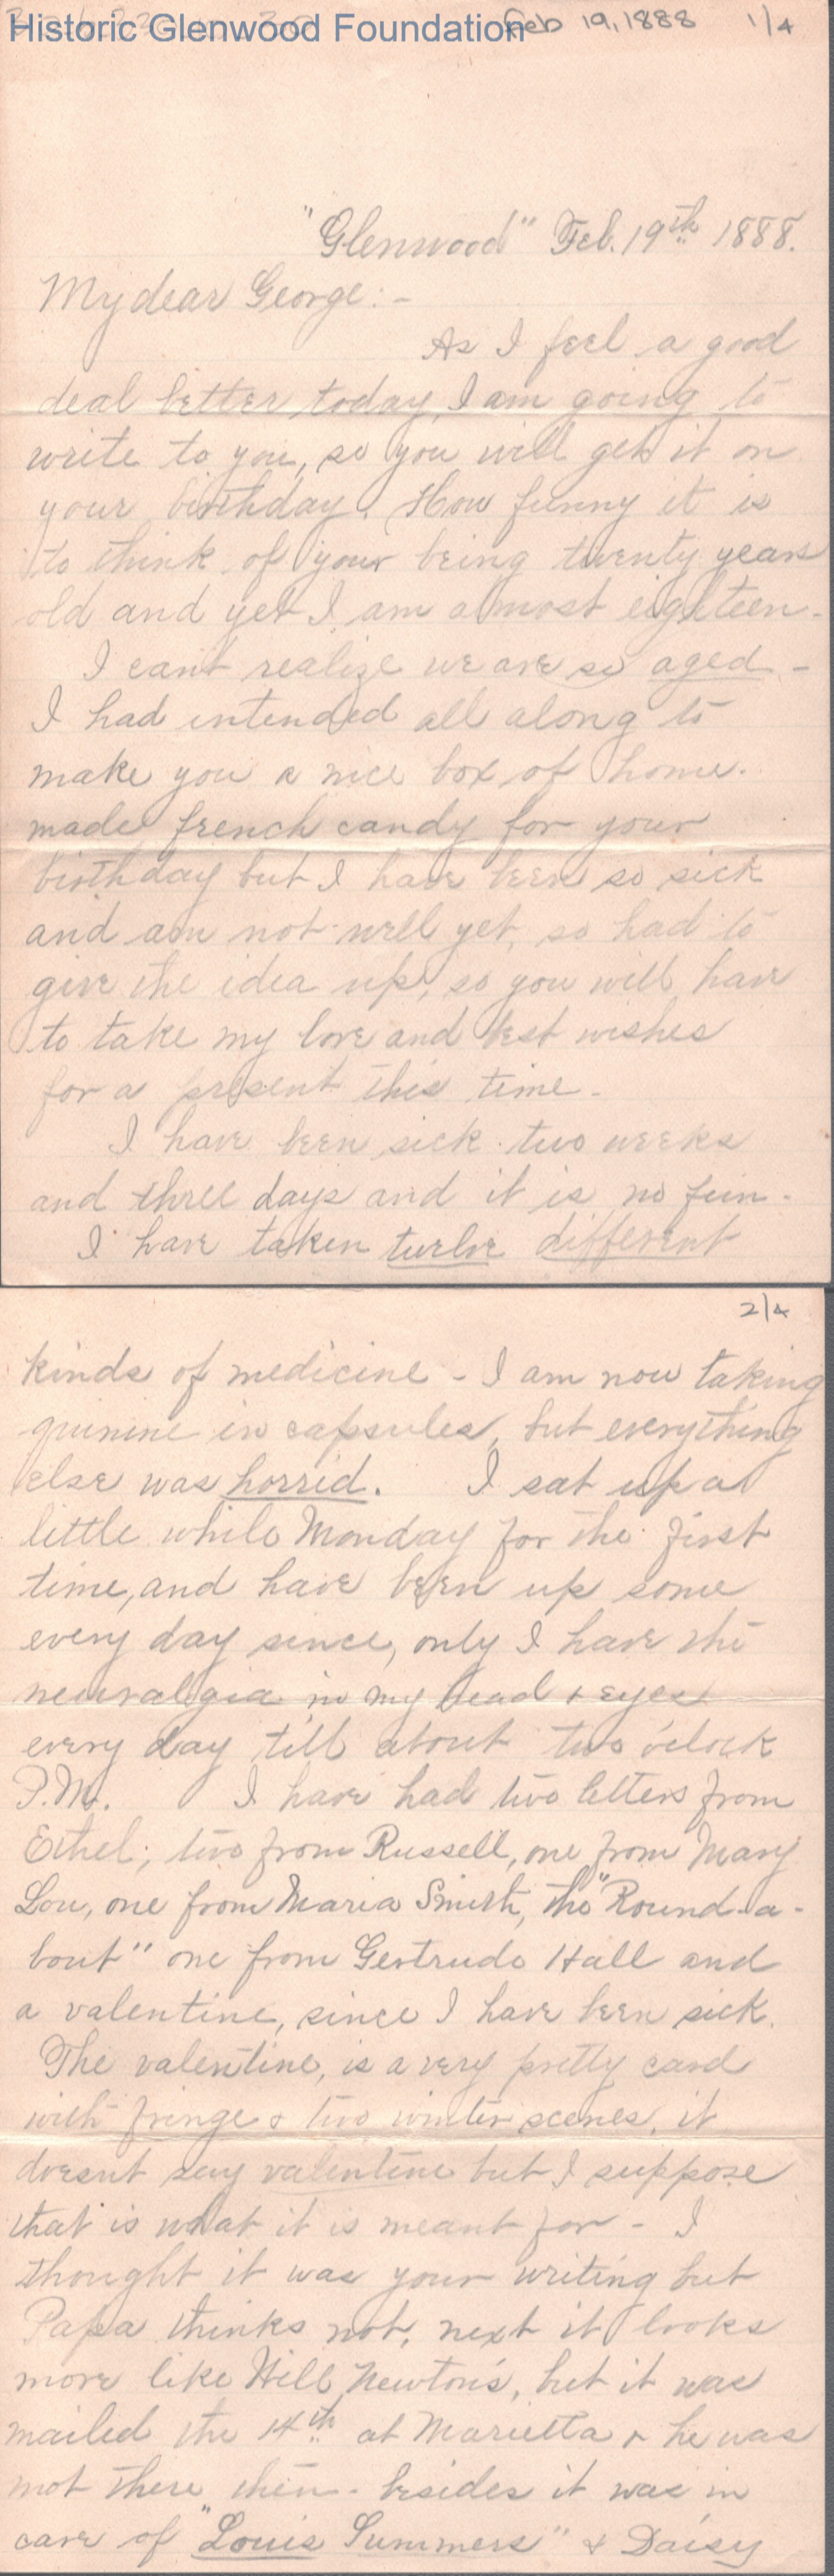 Historic Glenwood Foundation
Feb 19, 1888 1/4
"Glenwood" Feb. 19th 1888.
My dear George:-
As I feel a good
deal better today, I am going to
write to you, so you will get it on
your birthday. How funny it is
to think of your being twenty years
old and yet I am almost eighteen.
I can't realize we are so aged -
I had intended all along to
make you a nice box of home-
made french candy for your
birthday but I have been so sick
and am not well yet, so had to
give the idea up, so you will have
to take my love and best wishes
for a present this time -
I have been sick two weeks
and three days and it is no fun -
I have taken twelve different
2/4
kinds of medicine - I am now taking
quinine in capsules, but everything
else was horrid. I sat up a
little while Monday for the first
time, and have been up some
every day since, only I have the
neuralgia in my head & eyes
every day till about two o'clock
P.M. I have had two letters from
Ethel; two from Russell, one from Mary
Lou, one from Maria Smith, the "Round-a-
bout" one from Gertrude Hall and
a valentine, since I have been sick.
The valentine, is a very pretty card
with fringe & two winter scenes, it
doesnt say valentine but I suppose
that is what it is meant for - I
thought it was your writing but
Papa thinks not, next it looks
more like Will Newton's, but it was
mailed the 14th at Marietta & he was
not there then - besides it was in
care of "Louis Summers" & Daisy